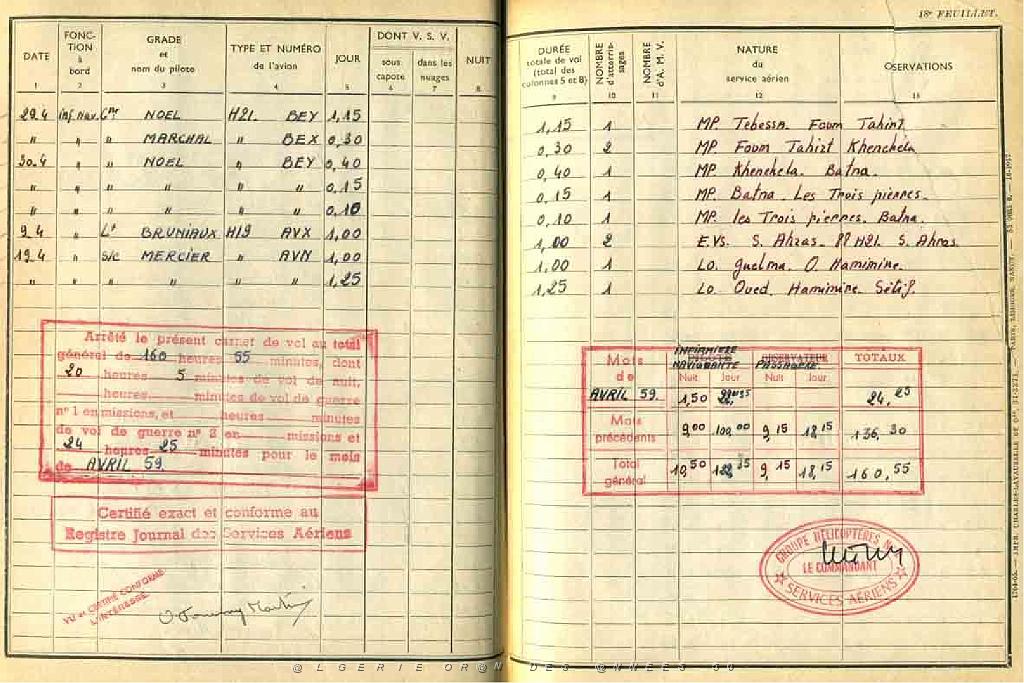 18e FEUILLET.
DATE
FONC-
TION
à
bord
GRADE
et
nom du pilote
TYPE ET NUMÉRO
de l'avion
JOUR
DONT V. S. V.
sous
capote
dans les
nuages
NUIT
1 2 3 4 5 6 7 8
29.4 inf. Nav. Cne NOEL H21. BEY 1,15
" " " MARCHAL " BEX 0,30
30.4 " " NOEL " BEY 0,40
" " " " " " 0,15
" " " " " " 0,10
9.4 " Lt BRUNIAUX H19 AVX 1,00
19.4 " S/c MERCIER " AVN 1,00
" " " " " " 1,25
Arrêté le présent carnet de vol au total
général de 160 heures 55 minutes, dont
20 heures 5 minutes de vol de nuit,
heures minutes de vol de guerre
n° 1 en missions, et heures minutes
de vol de guerre n° 2 en missions et
24 heures 25 minutes pour le mois
de AVRIL 59.
Certifié exact et conforme au
Registre Journal des Services Aériens
VU et CERTIFIÉ CONFORME
L'INTÉRESSÉ
DURÉE
totale de vol
(total des
colonnes 5 et 8)
NOMBRE
d'atterris-
sages
NOMBRE
d'A. M. V.
NATURE
du
service aérien
OSERVATIONS
9 10 11 12 13
1,15 1 MP. Tebessa. Foum Tahizt
0,30 2 MP Foum Tahizt Khenchela
0,40 1 MP Khenchela. Batna.
0,15 1 MP. Batna. Les Trois pierres.
0,10 1 MP. les Trois pierres. Batna.
1,00 2 E.Vs. S. Ahras. 88 H21. S. Ahras.
1,00 1 Lo. Guelma. O. Hamimine.
1,25 1 Lo. Oued. Hamimine. Sétif.
Mois
de
INFIRMIERE
NAVIGUANTE
OBSERVATEUR
PASSAGERE.
TOTAUX
Nuit Jour Nuit Jour
AVRIL 59. 1,50 24,25
Mois
précédents
9,00 100,00 9,15 18,15 136,30
Total
général
10,50 9,15 18,15 160,55
GROUPE HÉLICOPTÈRES N°
LE COMMANDANT
SERVICES AÉRIENS
@LGERIE OR@N DES @NNEES 50